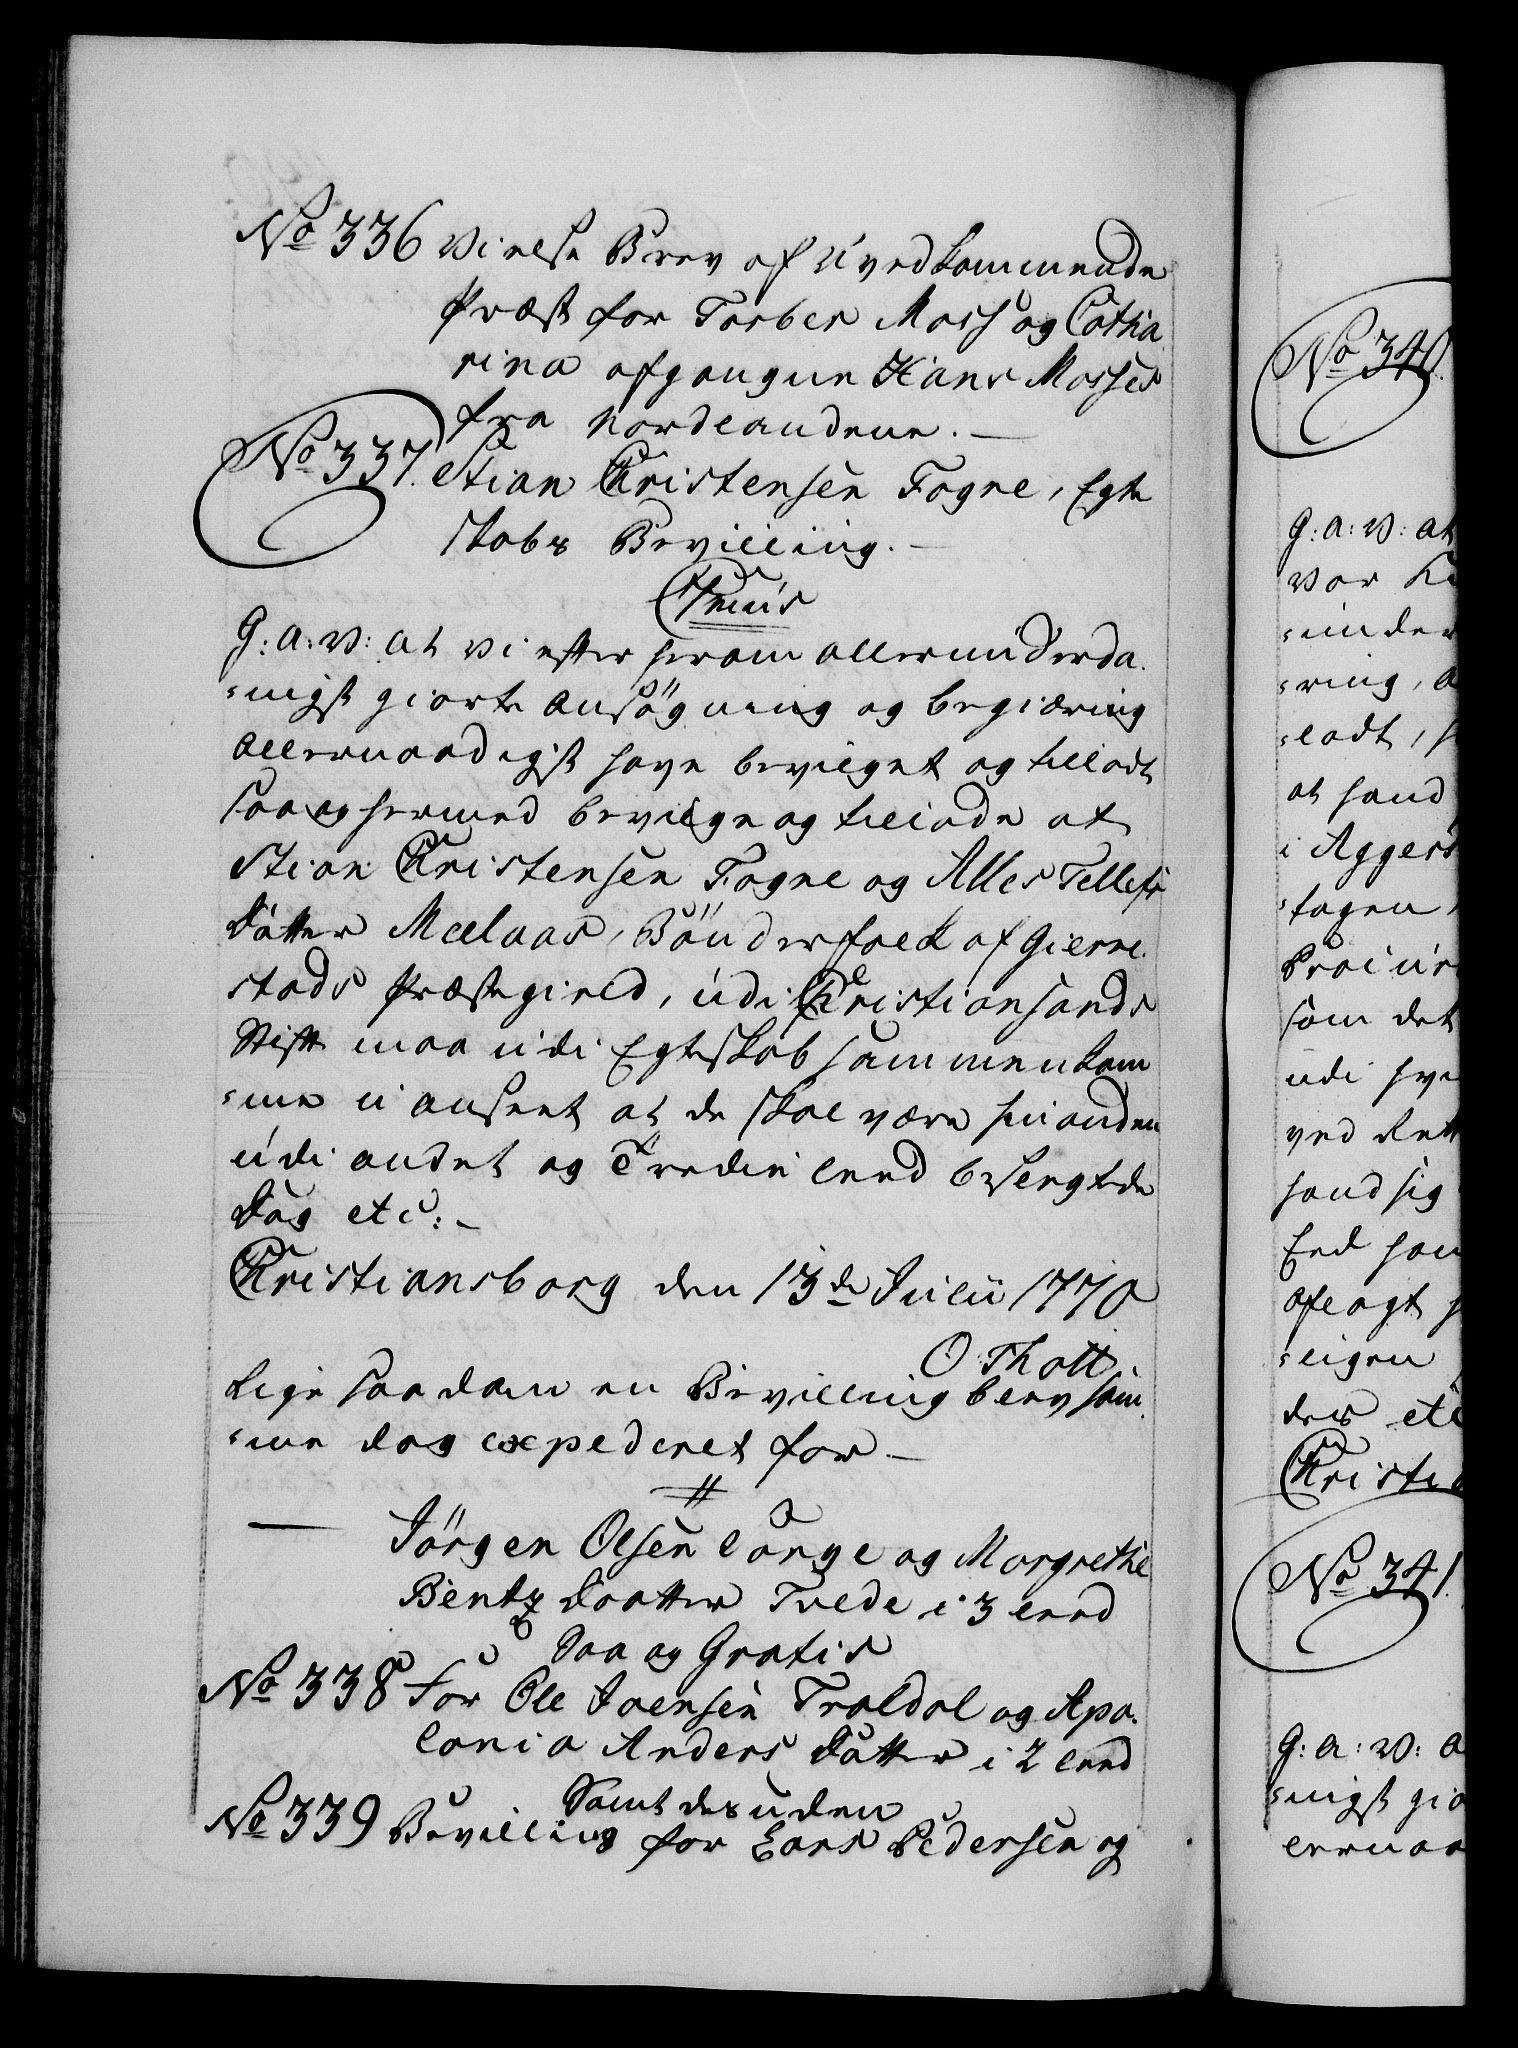 No 336 Vielse Brev af Uvedkommende
Præst for Torber Moss og Catha
rina afgangne Hans Mosses
fra Nordlandene. —
No 337. Stian Christensen Fogne, Egte
skabs Bevilling. —
C7mus
G: a: V: at Vi efter herom allerunderda
=nigst giorte Ansögning og begiæring
allernaadigst have bevilget og tilladt
saa og hermed bevilge og tillade at
Stian Christensen Fogne og Alles Tellefs
datter Mælaas, Bönderfolk af Gierre
stads Præstegield, udi Christiansands
Stift maa udi Egteskab sammenkom
=me uanseet at de skal være hinanden
udi andet og Tredie leed beslegtede
Dog etc: —
Christiansborg den 13de Julii 1770
O Thott
Lige saadan en Bevilling blev sam
=me dag expederet for —
Jörgen Olsen Lange og Margrethe
Bentz Daatter Tvede i 3 leed
Saa og Gratis
No 338 For Ole Joensen Traldal og Apo
lonia Anders Datter i 2 leed
Samt desuden
No 339 Bevilling for Lars Pedersen og
No 340.
G: a: V: at
vor
=under
=ring, a
=ladt, s
at hand
i Agger
=tagen
som det
udi
ved Rett
hand sig
End
aflagt
=ligen
des etc
Christi
No 341.
G: a: V: a
=nigst gio
lernaa